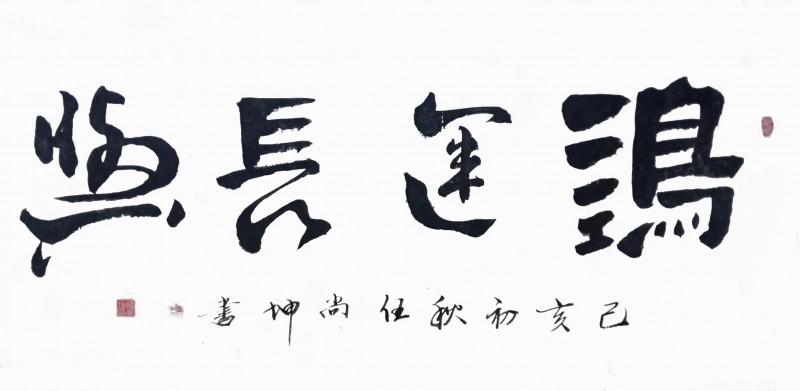 鴻運長興
己亥初秋任尚坤書